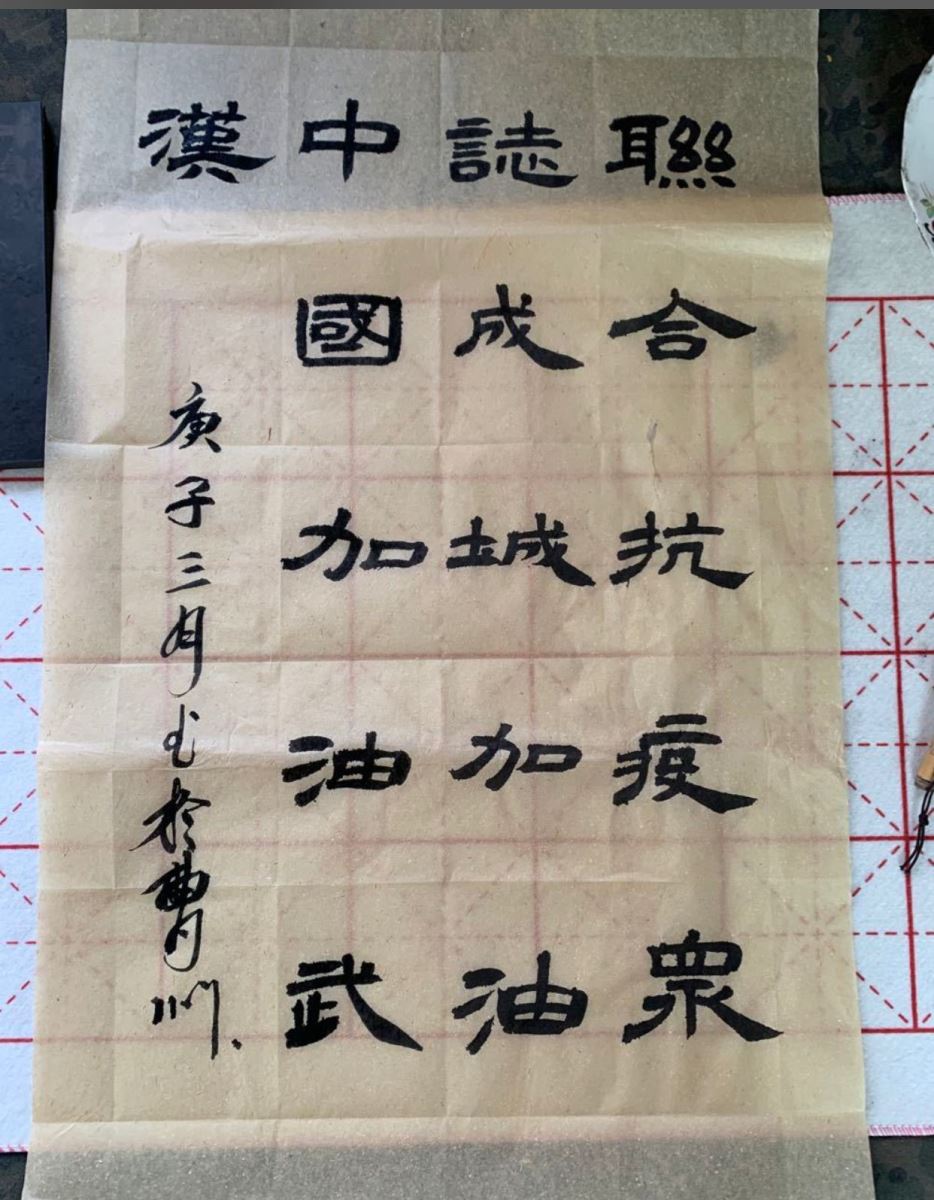 聯合抗疫眾
誌成城加油
中國加油武
漢
庚子三月书於曹州